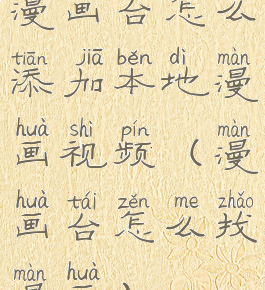 漫画台怎么
tiān jiā běn dì màn
添加本地漫
huà shì pín màn
画视频（漫
huà tái zěn me zhǎo
画台怎么找
màn huà
漫画）